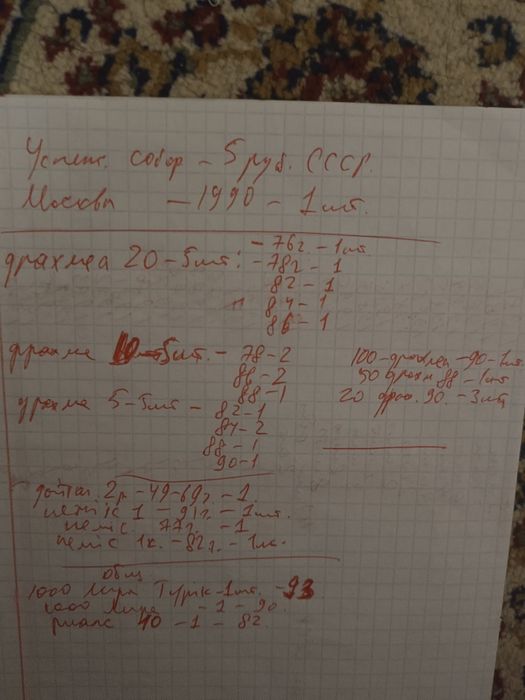 Успенс. собор – 5 руб. СССР.
Москвы – 1990 – 1 шт.
драхмеа 20 – 5 шт: – 76г. – 1 шт
– 78г – 1
82 – 1
84 – 1
86 – 1
драхме 10 – 5 шт. – 78 – 2
86 – 2
88 – 1
драхма 5 – 5 шт – 82 – 1
84 – 2
88 – 1
90 – 1
100 – драхмеа – 90 – 1 шт.
50 драхм 88 – 1 шт
20 драх. 90. – 3 шт
2 – 49-69г. – 1.
1 – 91г. – 1 шт.
77г. – 1
1к. – 82г. – 1
общ
1000 Лира Турк – 1 шт. – 93
1000 Лира – 1 – 90.
риалс 40 – 1 – 82